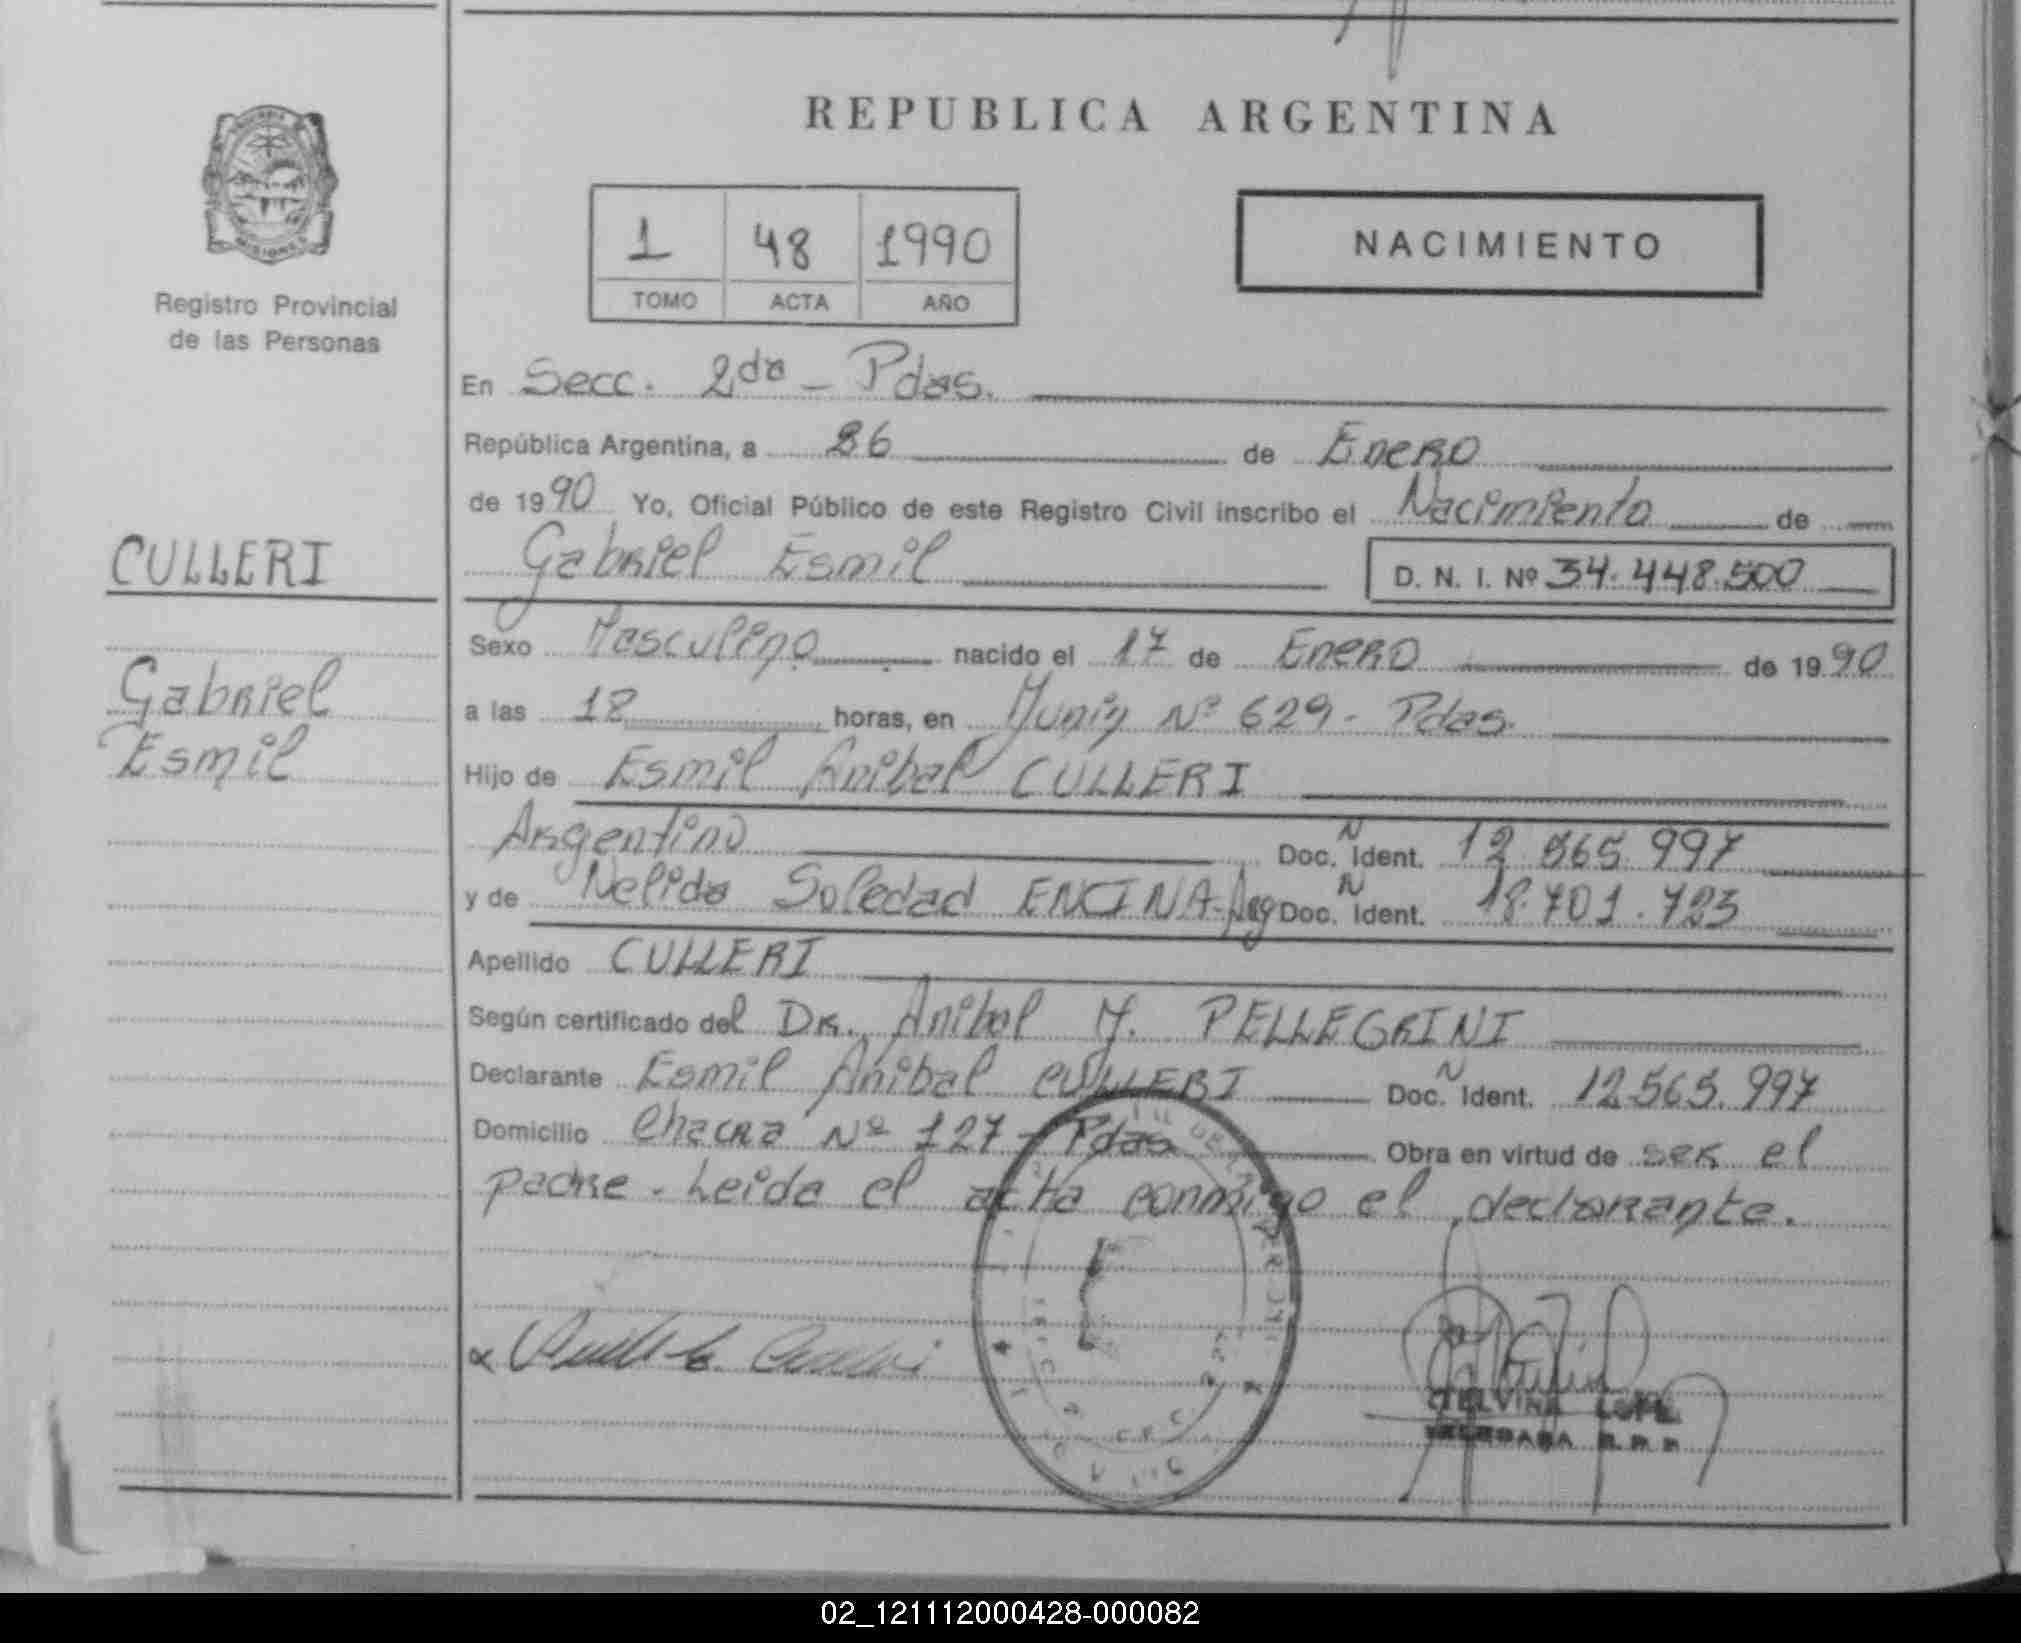 REPUBLICA ARGENTINA
MISIONES
Registro Provincial
de las Personas
1 48 1990
TOMO ACTA AÑO
NACIMIENTO
En Secc. 2da - Pdas.
República Argentina, a 26 de Enero
de 1990 Yo, Oficial Público de este Registro Civil inscribo el Nacimiento de
CULLERI
Gabriel Esmil D. N. I. Nº 34.448.500
Sexo Masculino nacido el 17 de Enero de 1990
Gabriel
Esmil
a las 18 horas, en Junin Nº 629 - Pdas.
Hijo de Esmil Anibal CULLERI
Argentino Doc. N Ident. 12.565.997
y de Nelida Soledad ENCINA-Arg Doc. N Ident. 18.701.723
Apellido CULLERI
Según certificado del Dr. Anibal J. PELLEGRINI
Declarante Esmil Anibal CULLERI Doc. N Ident. 12.565.997
Domicilio Chacra Nº 127 - Pdas Obra en virtud de ser el
padre. Leida el acta conmigo el declarante.
DELEGADA R. P. P.
02_121112000428-000082